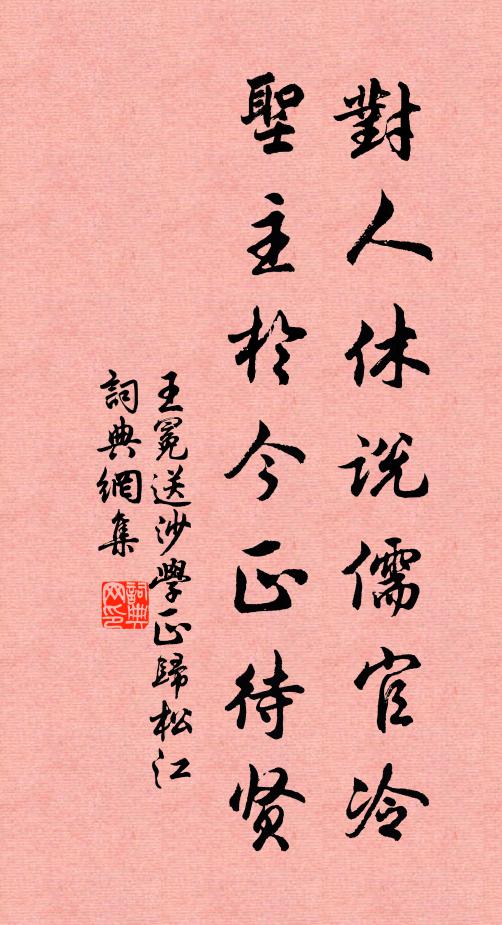 對人休說儒官冷
聖主於今正待贤
王冕送沙學正歸松江
詞典網集
詞典网印